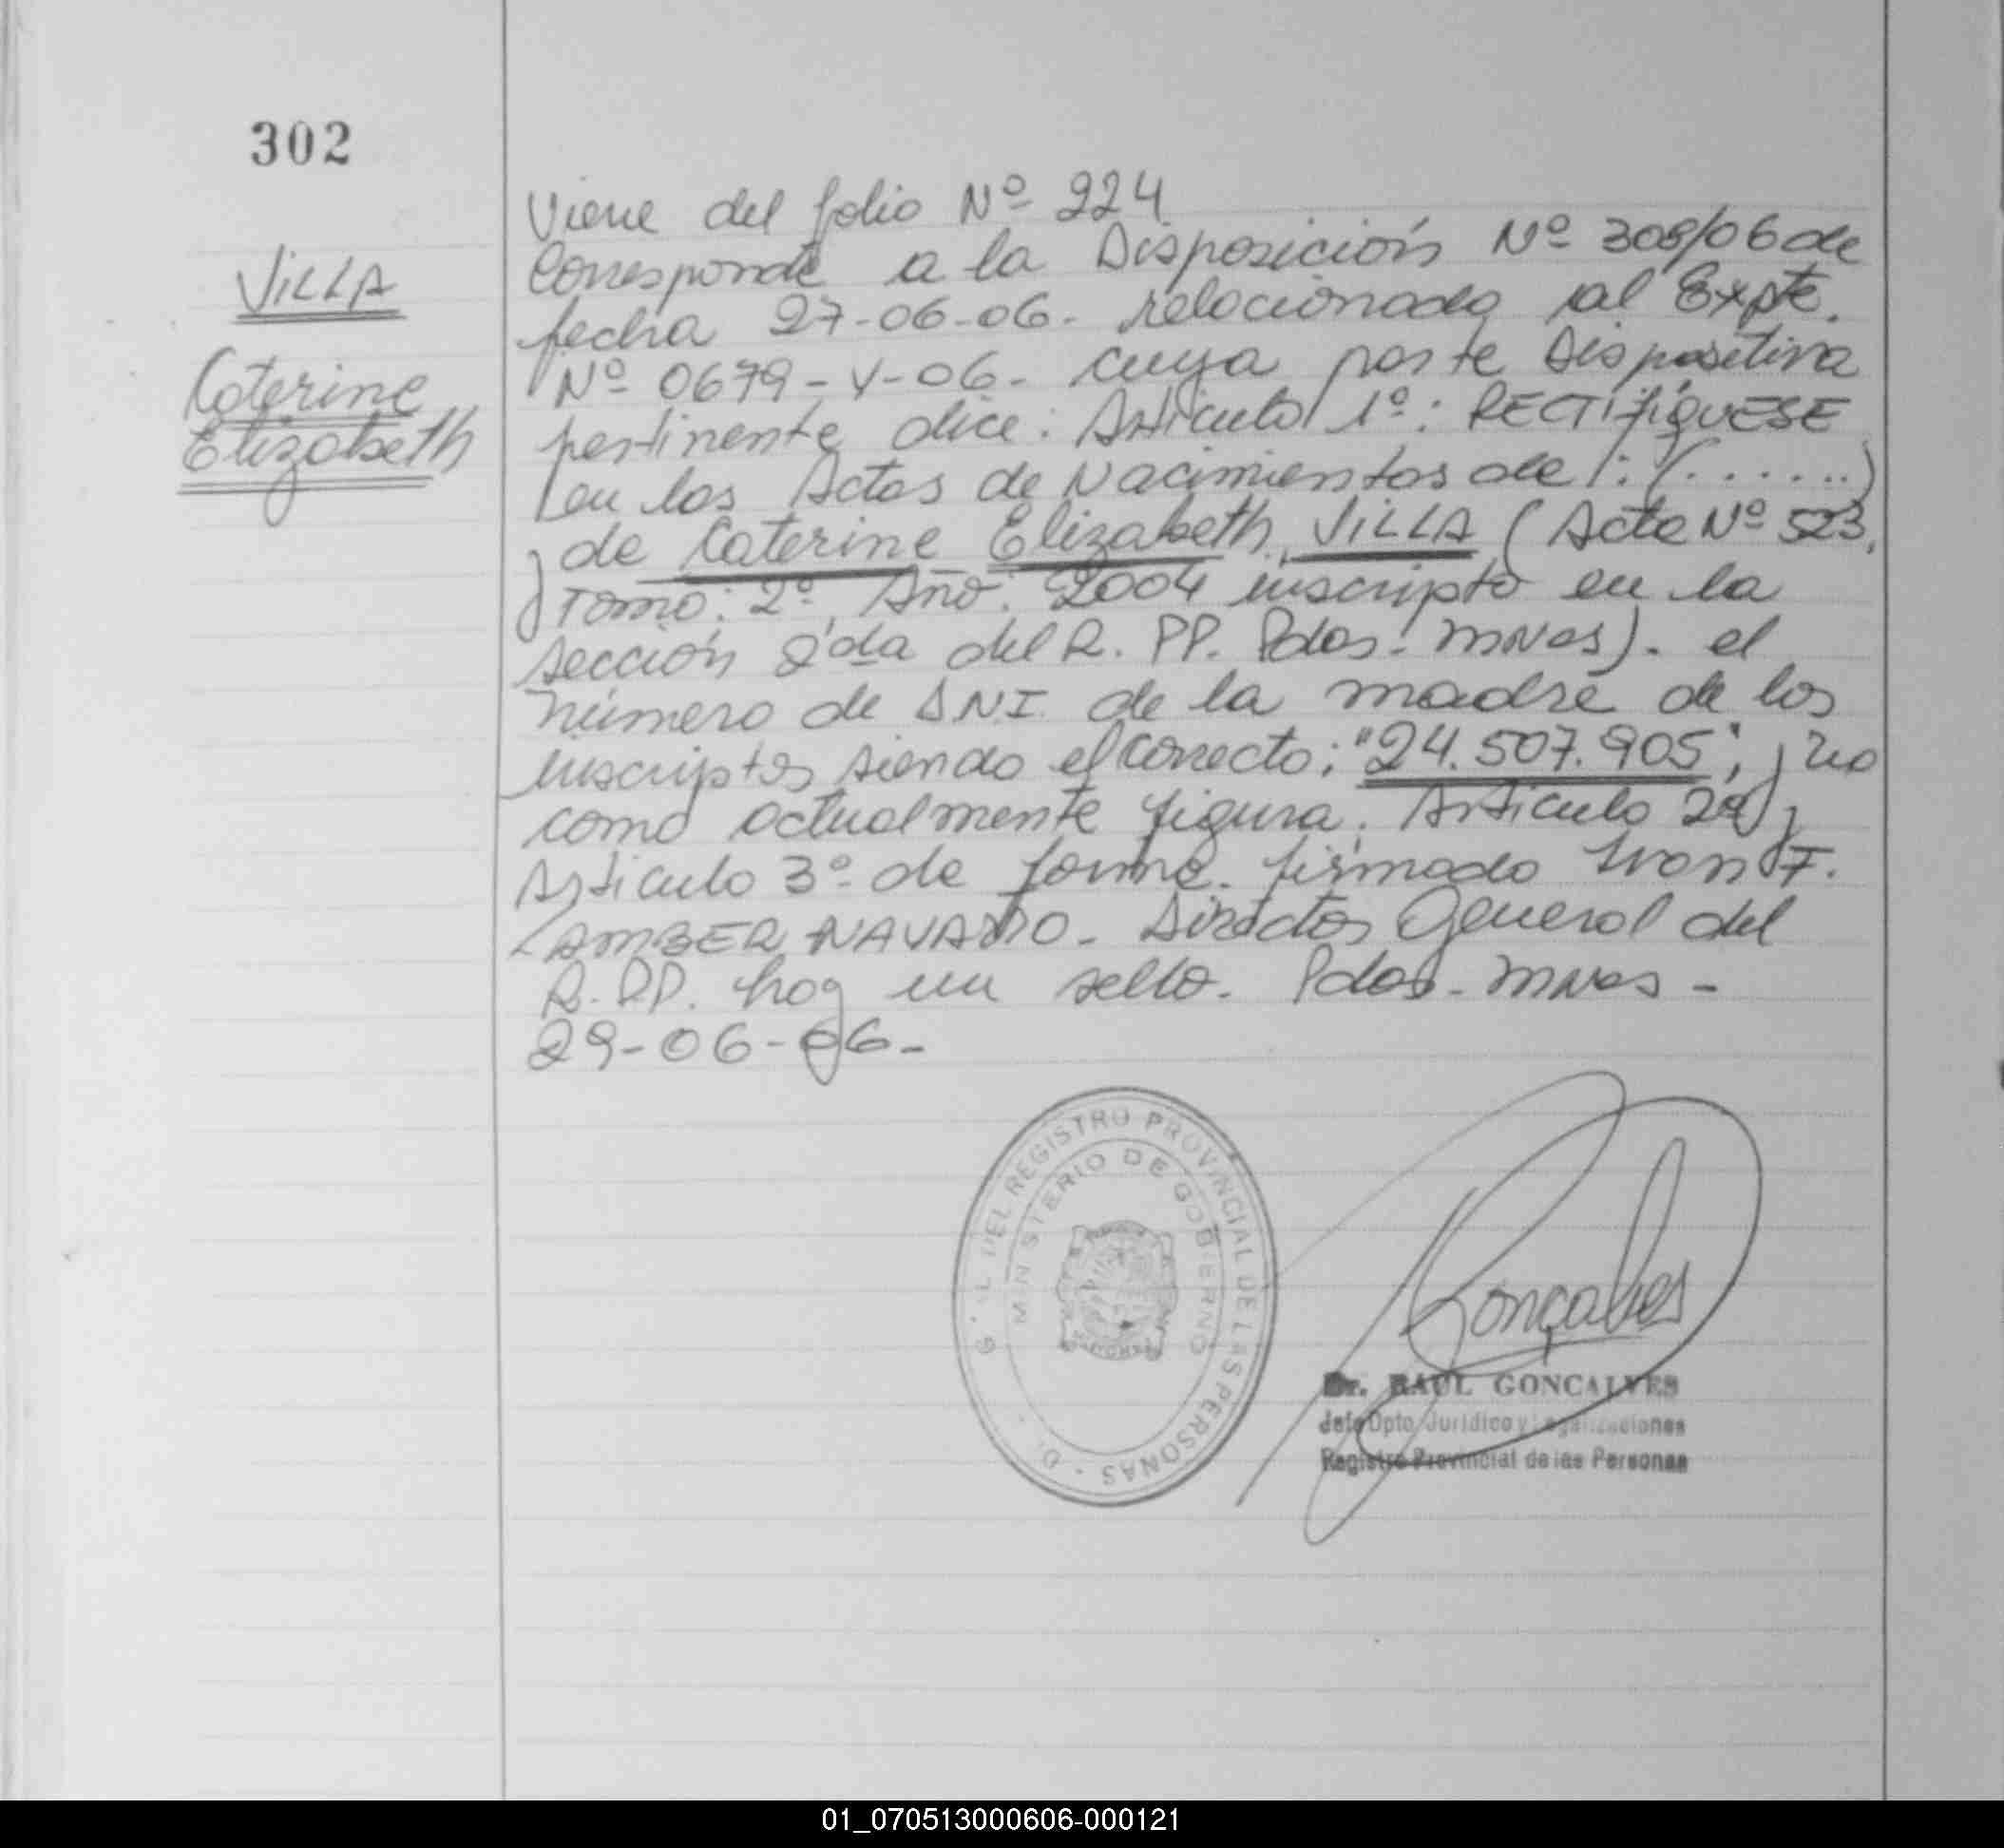 302
VILLA
Caterine
Elizabeth
Viene del folio Nº 224
Corresponde a la Disposición Nº 308/06 de
fecha 27-06-06. relacionado al Expte.
Nº 0679-V-06. cuya parte dispositiva
pertinente dice: Artículo 1º: RECTIFIQUESE
en las Actas de Nacimientos de: (......)
y de Caterine Elizabeth VILLA (Acta Nº 523,
Tomo: 2º, Año: 2004 inscripta en la
sección 2da del R. PP. Pdas. Mnes). el
número de DNI de la madre de los
inscriptos siendo el correcto: "24.507.905", y no
como actualmente figura. Artículo 2º y
Artículo 3º de forma. firmado Ivon F.
LAMBER NAVARRO. Director General del
R.PP. hay un sello. Pdas. Mnes -
29-06-06.
D. G. L DEL REGISTRO PROVINCIAL DE LAS PERSONAS
MINISTERIO DE GOBIERNO
Gonçalves
Dr. RAUL GONCALVES
Jefe Dpto. Jurídico y Legalizaciones
Registro Provincial de las Personas
01_070513000606-000121